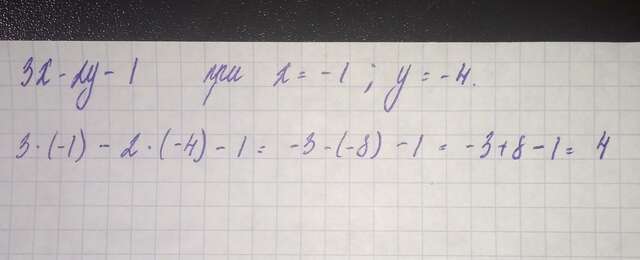 3x - 2y - 1 при x = -1 ; y = -4.
3·(-1) - 2·(-4) - 1 = -3 - (-8) - 1 = -3 + 8 - 1 = 4